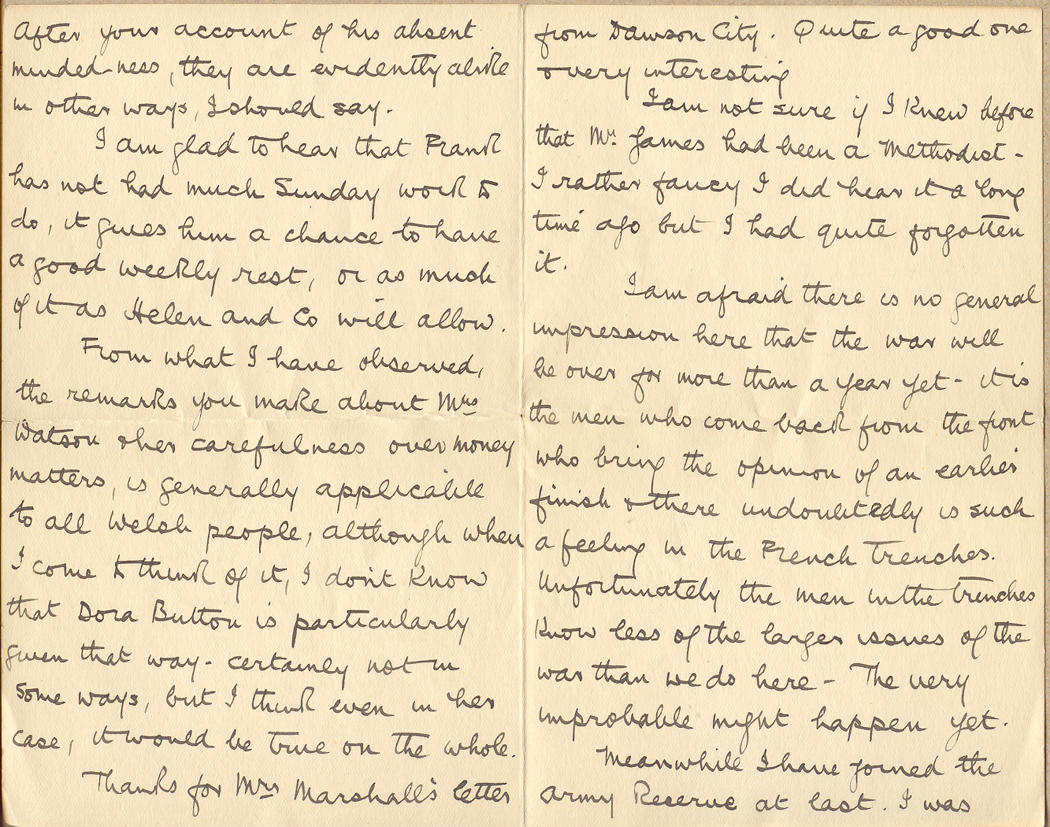 After your account of his absent
minded-ness, they are evidently alike
in other ways, I should say.
I am glad to hear that Frank
has not had much Sunday work to
do, it gives him a chance to have
a good weekly rest, or as much
of it as Helen and Co will allow.
From what I have observed,
the remarks you make about Mrs
Watson & her carefulness over money
matters, is generally applicable
to all Welsh people, although when
I come to think of it, I don't know
that Dora Button is particularly
given that way - certainly not in
some ways, but I think even in her
case, it would be true on the whole.
Thanks for Mrs Marshall's letter
from Dawson City. Quite a good one
& very interesting
I am not sure if I knew before
that Mr. James had been a Methodist -
I rather fancy I did hear it a long
time ago but I had quite forgotten
it.
I am afraid there is no general
impression here that the war will
be over for more than a year yet - it is
the men who come back from the front
who bring the opinion of an earlier
finish & there undoubtedly is such
a feeling in the French trenches.
Unfortunately the men in the trenches
know less of the larger issues of the
war than we do here - The very
improbable might happen yet.
Meanwhile I have joined the
Army Reserve at last. I was